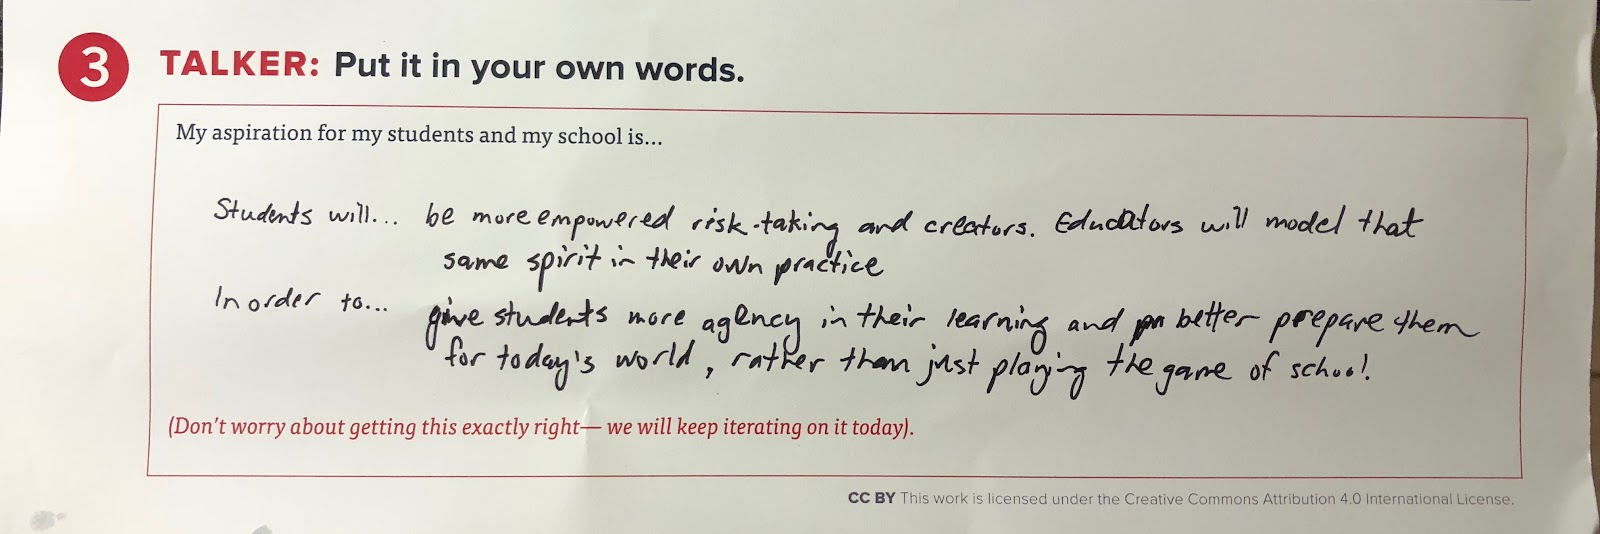 3 TALKER: Put it in your own words.
My aspiration for my students and my school is...
Students will... be more empowered risk-taking and creators. Educators will model that
same spirit in their own practice
In order to... give students more agency in their learning and better prepare them
for today's world, rather than just playing the game of school.
(Don't worry about getting this exactly right— we will keep iterating on it today).
CC BY This work is licensed under the Creative Commons Attribution 4.0 International License.